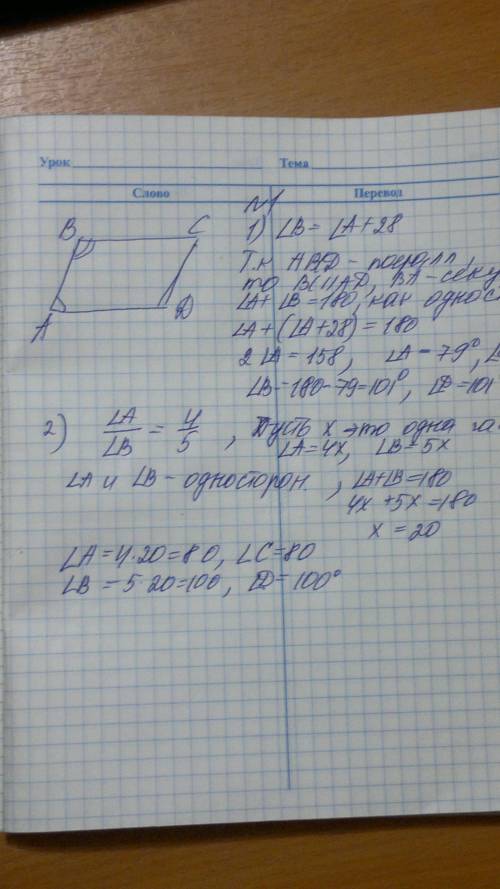 Урок Тема
Слово Перевод
B C
A D
№1
1) ∠B = ∠A+28
Т.к ABCD – поралл,
то BC || AD, BA – секу
∠A + ∠B = 180, как одност
∠A + (∠A+28) = 180
2∠A = 158, ∠A = 79°, ∠
∠B = 180 – 79 = 101°, ∠D = 101
2) ∠A/∠B = 4/5, Пусть x это одна ча
∠A = 4x, ∠B = 5x
∠A и ∠B – односторон, ∠A+∠B = 180
4x + 5x = 180
x = 20
∠A = 4·20 = 80, ∠C = 80
∠B = 5·20 = 100, ∠D = 100°